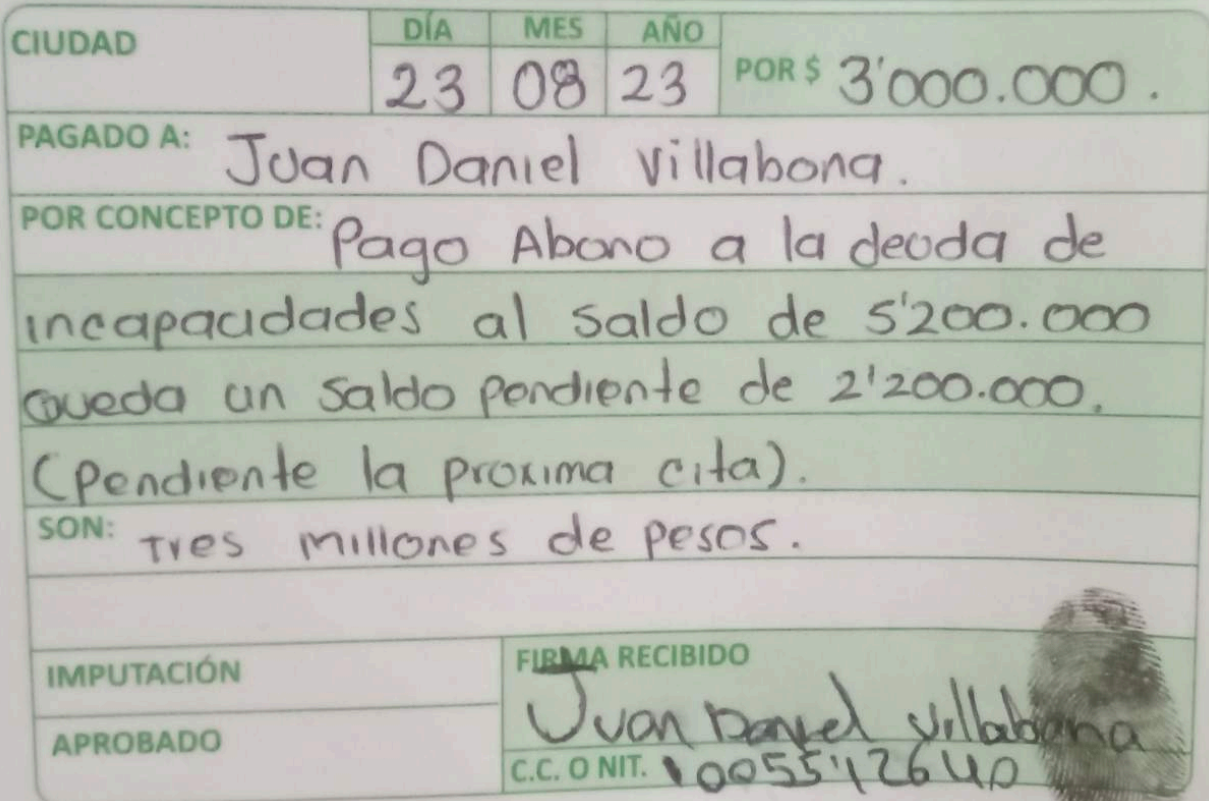 CIUDAD
DÍA MES AÑO
23 08 23
POR $ 3'000.000.
PAGADO A: Juan Daniel Villabona.
POR CONCEPTO DE: Pago Abono a la deuda de
incapacidades al saldo de 5'200.000
queda un saldo pendiente de 2'200.000.
(Pendiente la proxima cita).
SON: Tres millones de pesos.
IMPUTACIÓN
FIRMA RECIBIDO
Juan Daniel Villabona
APROBADO
C.C. O NIT.